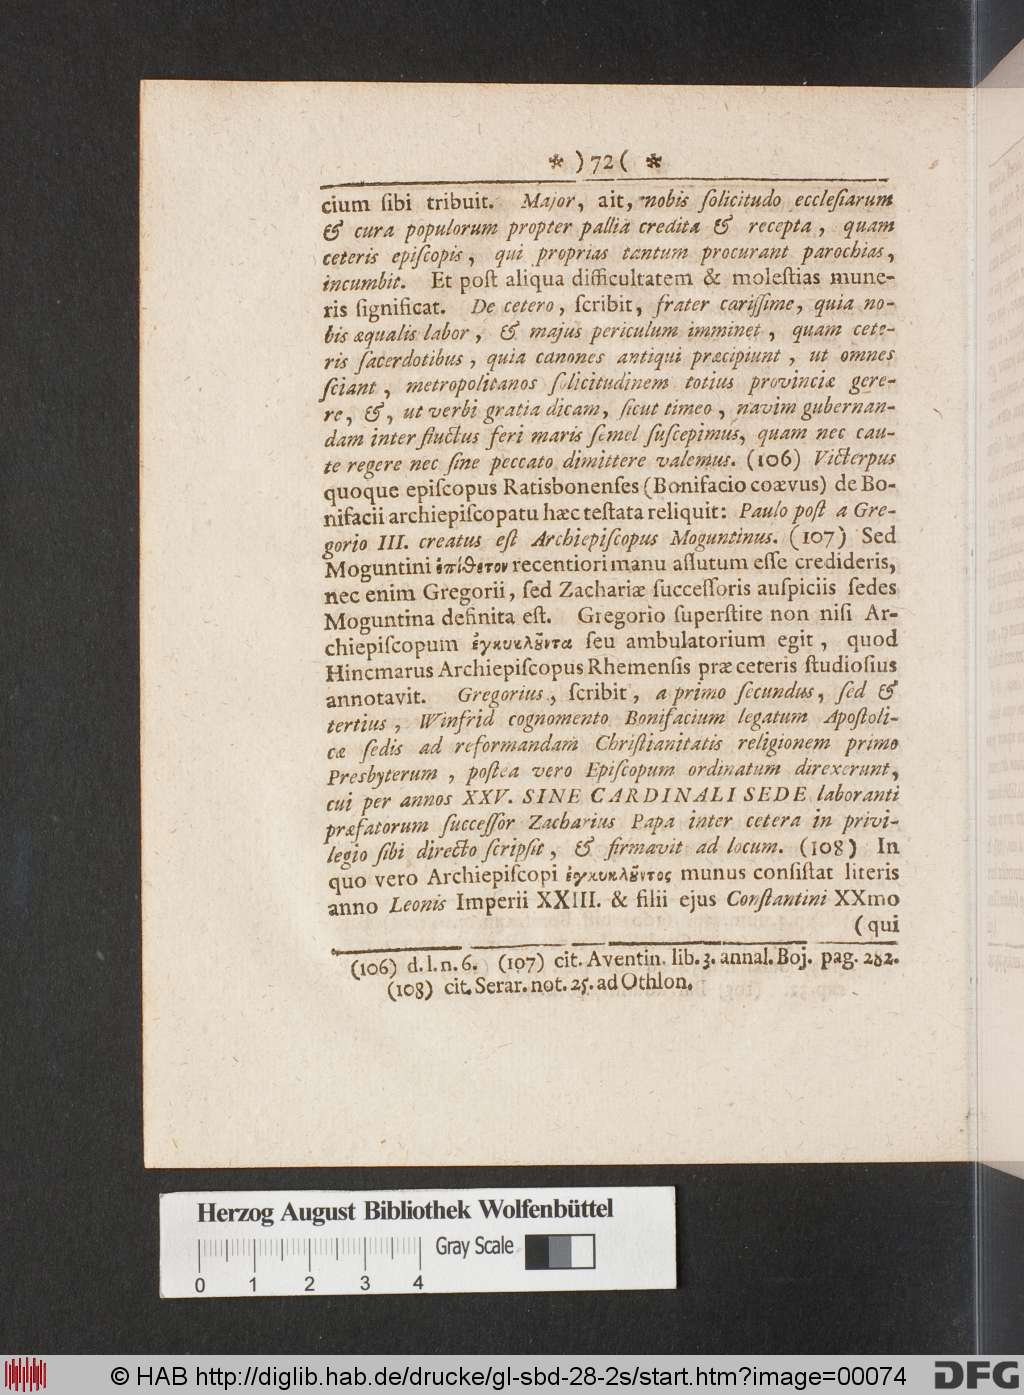 * ) 72 ( *
cium ſibi tribuit. Major, ait, nobis ſolicitudo eccleſiarum
& cura populorum propter pallia credita & recepta, quam
ceteris epiſcopis, qui proprias tantum procurant parochias,
incumbit. Et poſt aliqua difficultatem & moleſtias mune-
ris ſignificat. De cetero, ſcribit, frater cariſſime, quia no-
bis æqualis labor, & majus periculum imminet, quam cete-
ris ſacerdotibus, quia canones antiqui præcipiunt, ut omnes
ſciant, metropolitanos ſolicitudinem totius provinciæ gere-
re, &, ut verbi gratia dicam, ſicut timeo, navim gubernan-
dam inter fluctus feri maris ſemel ſuſcepimus, quam nec cau-
te regere nec ſine peccato dimittere valemus. (106) Victerpus
quoque epiſcopus Ratisbonenſes (Bonifacio coævus) de Bo-
nifacii archiepiſcopatu hæc teſtata reliquit: Paulo poſt a Gre-
gorio III. creatus eſt Archiepiſcopus Moguntinus. (107) Sed
Moguntini ἐπίθετον recentiori manu aſſutum eſſe credideris,
nec enim Gregorii, ſed Zachariæ ſucceſſoris auſpiciis ſedes
Moguntina definita eſt. Gregorio ſuperſtite non niſi Ar-
chiepiſcopum ἐγκυκλȣ͂ντα ſeu ambulatorium egit, quod
Hincmarus Archiepiſcopus Rhemenſis præ ceteris ſtudioſius
annotavit. Gregorius, ſcribit, a primo ſecundus, ſed &
tertius, Winfrid cognomento Bonifacium legatum Apoſtoli-
cæ ſedis ad reformandam Chriſtianitatis religionem primo
Presbyterum, poſtea vero Epiſcopum ordinatum direxerunt,
cui per annos XXV. SINE CARDINALI SEDE laboranti
præfatorum ſucceſſor Zacharius Papa inter cetera in privi-
legio ſibi directo ſcripſit, & firmavit ad locum. (108) In
quo vero Archiepiſcopi ἐγκυκλȣ͂ντος munus conſiſtat literis
anno Leonis Imperii XXIII. & filii ejus Conſtantini XXmo
(qui
(106) d. l. n. 6. (107) cit. Aventin. lib. 3. annal. Boj. pag. 282.
(108) cit. Serar. not. 25. ad Othlon.
Herzog August Bibliothek Wolfenbüttel
Gray Scale
0 1 2 3 4
© HAB http://diglib.hab.de/drucke/gl-sbd-28-2s/start.htm?image=00074
DFG